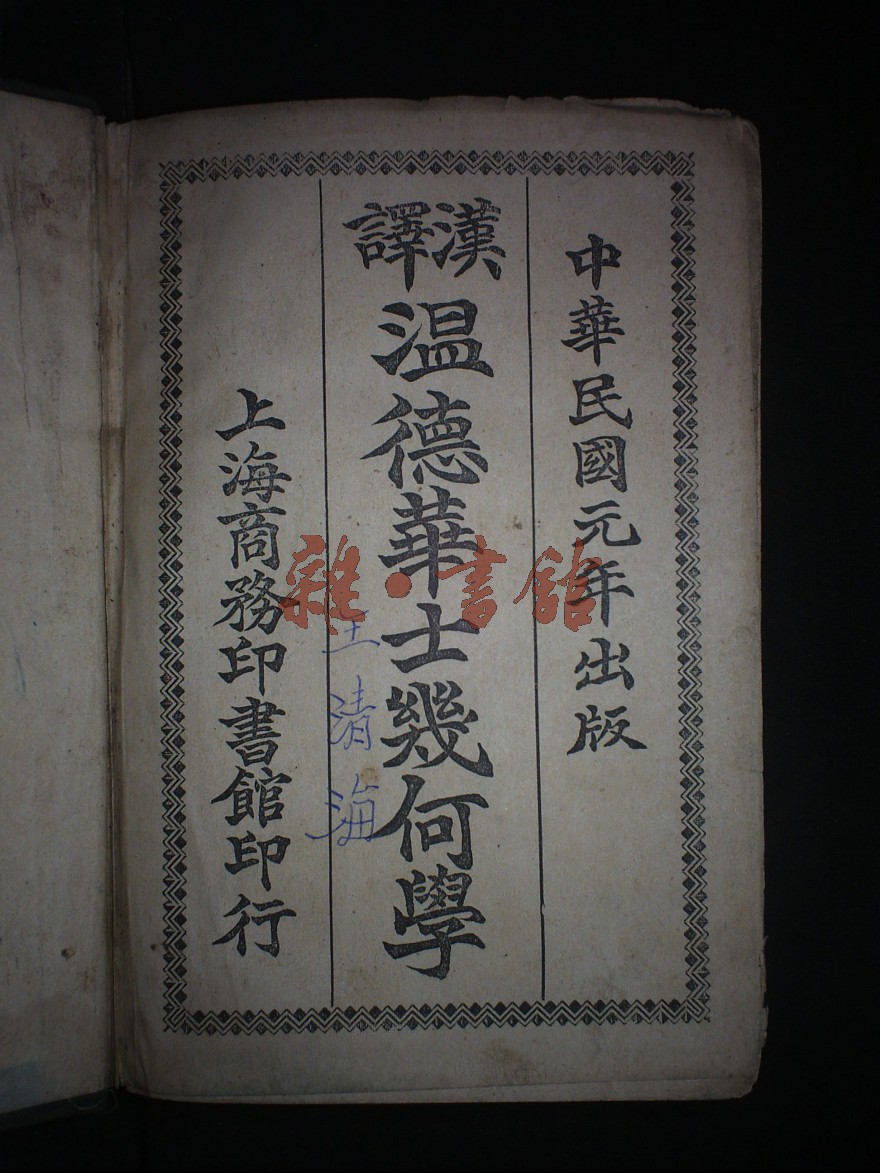 中華民國元年出版
漢譯
温德華士幾何學
上海商務印書館印行
王清海
雜·書館